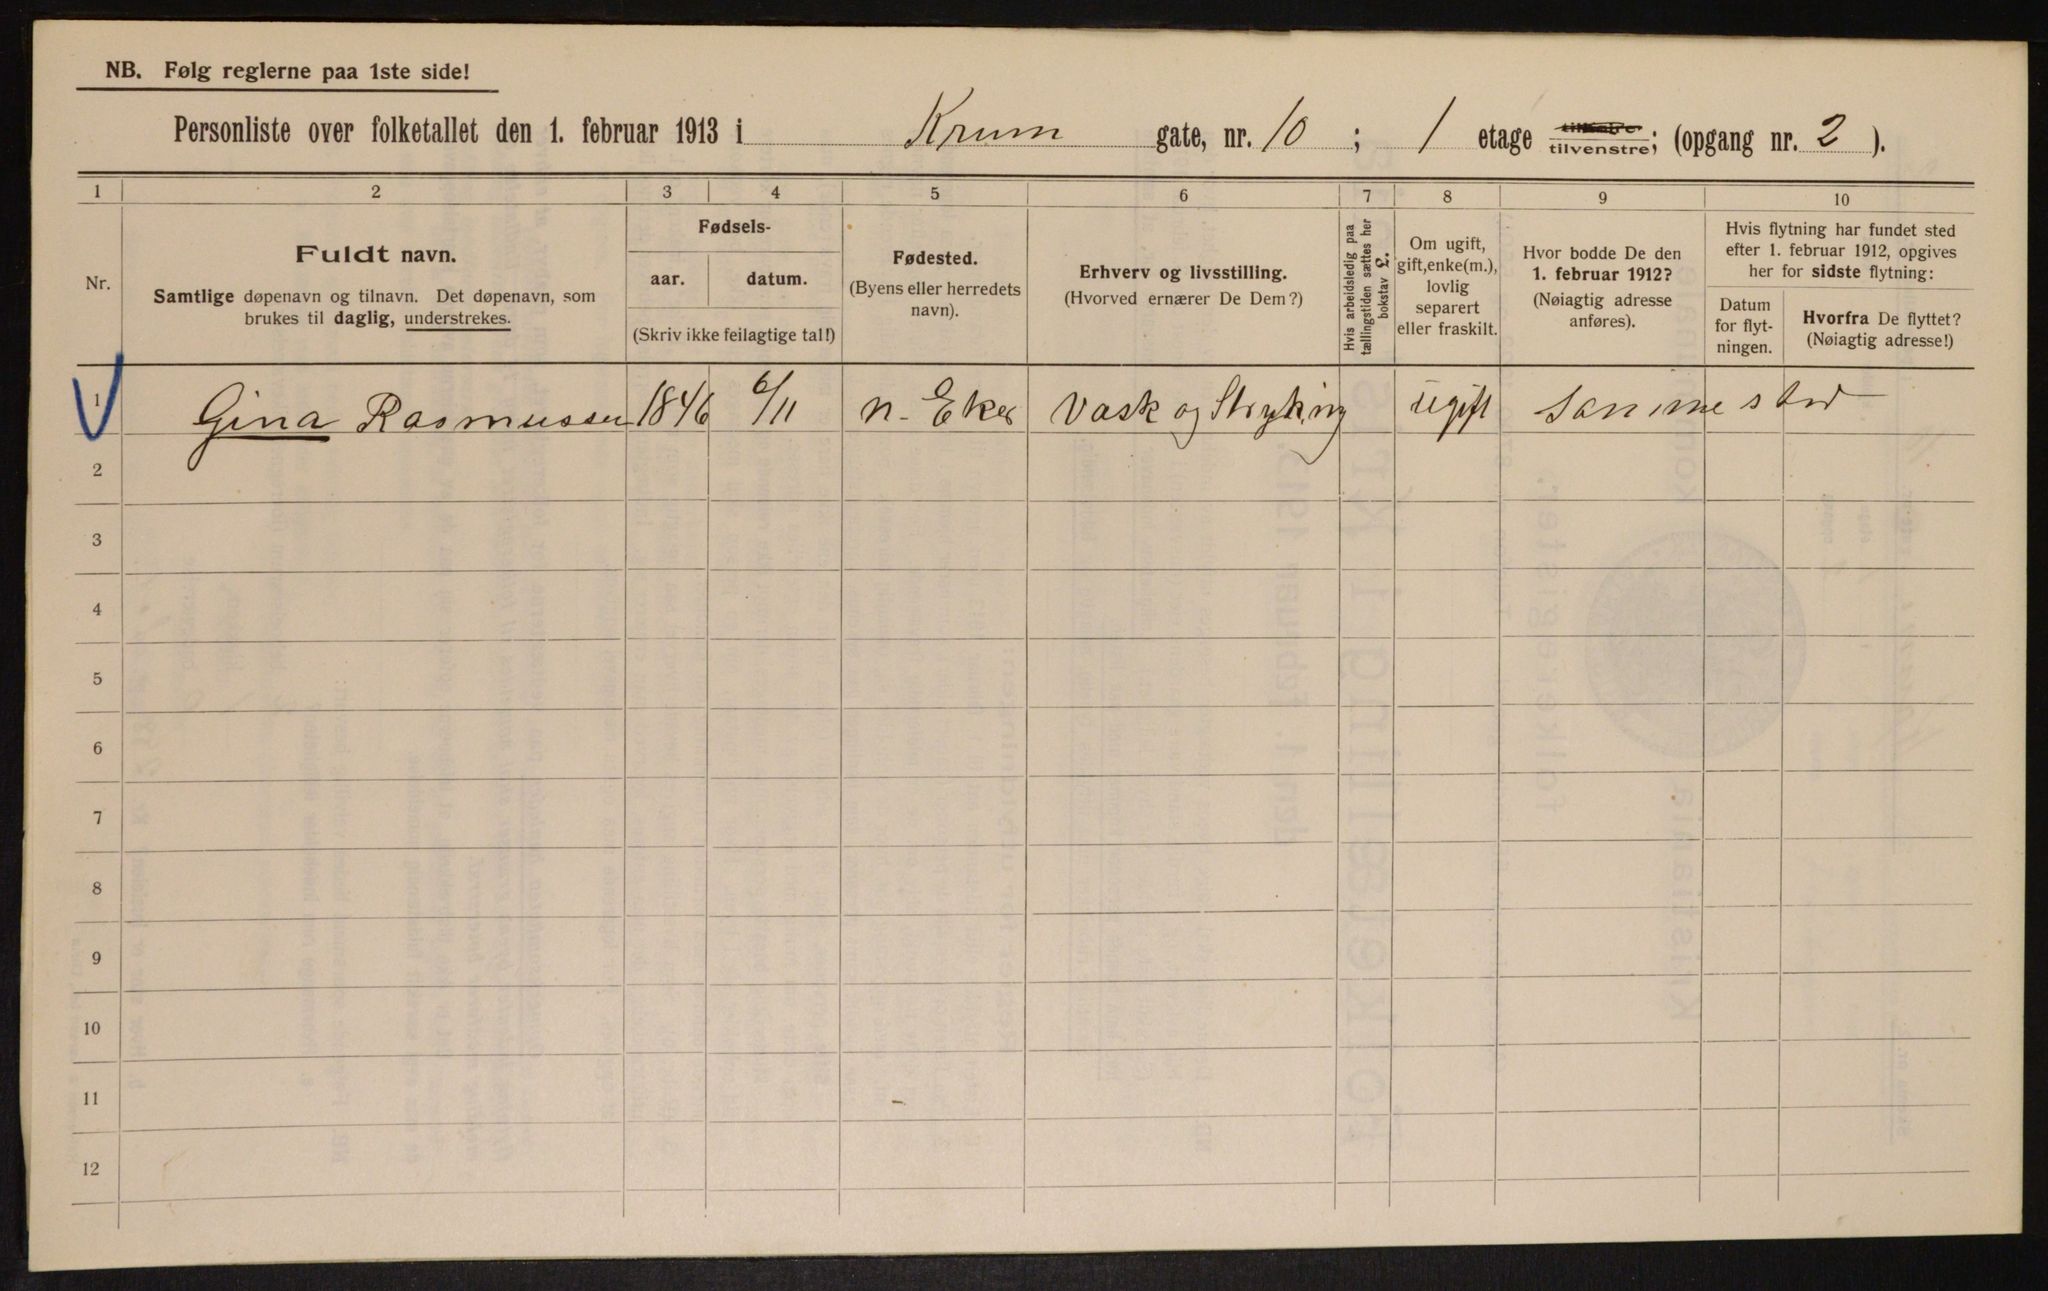 NB. Følg reglerne paa 1ste side!
Personliste over folketallet den 1. februar 1913 i Krum gate, nr. 10 ; 1 etage tilhøire tilvenstre; (opgang nr. 2 ).
1 2 3 4 5 6 7 8 9 10
Nr.
Fuldt navn.
Samtlige døpenavn og tilnavn. Det døpenavn, som
brukes til daglig, understrekes.
Fødsels-
aar. datum.
(Skriv ikke feilagtige tal!)
Fødested.
(Byens eller herredets
navn).
Erhverv og livsstilling.
(Hvorved ernærer De Dem?)
Hvis arbeidsledig paa
tællingstiden sættes her
bokstav L.
Om ugift,
gift, enke(m.),
lovlig
separert
eller fraskilt.
Hvor bodde De den
1. februar 1912?
(Nøiagtig adresse
anføres).
Hvis flytning har fundet sted
efter 1. februar 1912, opgives
her for sidste flytning:
Datum
for flyt-
ningen.
Hvorfra De flyttet?
(Nøiagtig adresse!)
1 Gina Rasmussen 1846 6/11 N. Eker Vask og Stryking ugift Sammested
2
3
4
5
6
7
8
9
10
11
12